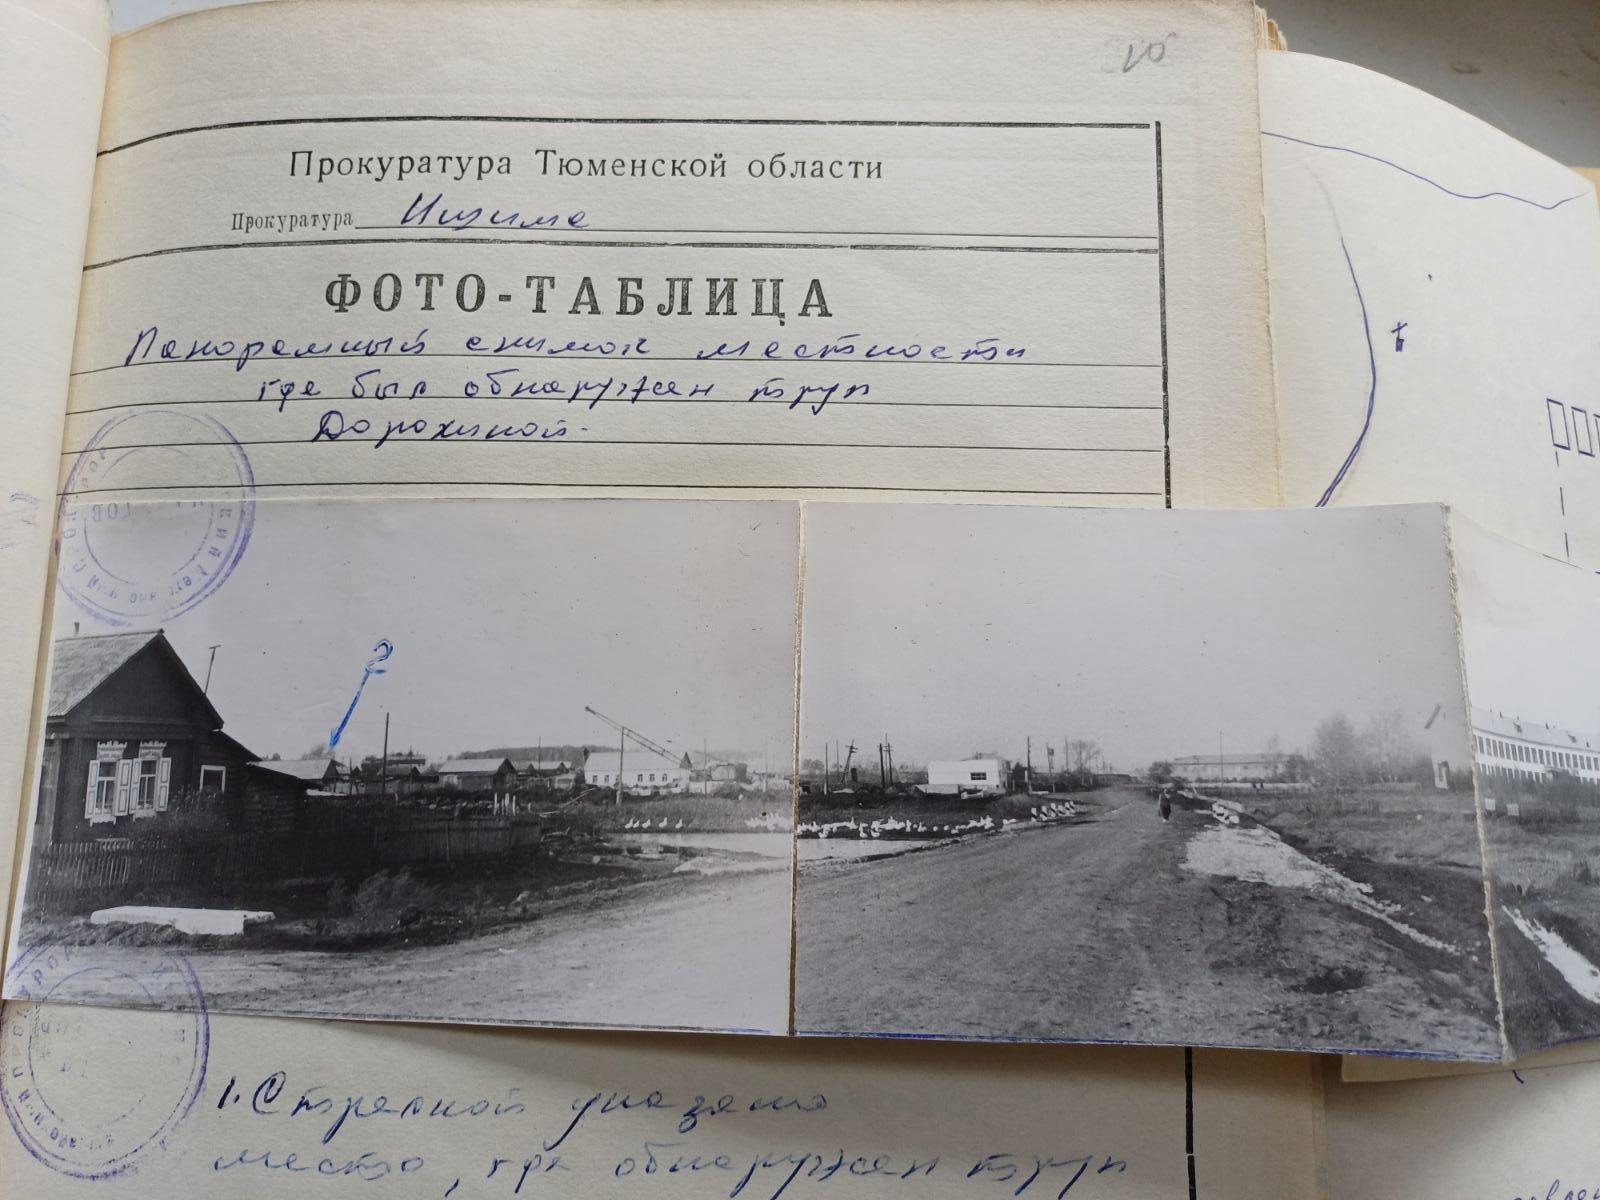 10
Прокуратура Тюменской области
Прокуратура Ишима
ФОТО-ТАБЛИЦА
Панорамный снимок местности
где был обнаружен труп
Дорохиной.
2
1. Стрелкой указано
место, где обнаружен труп